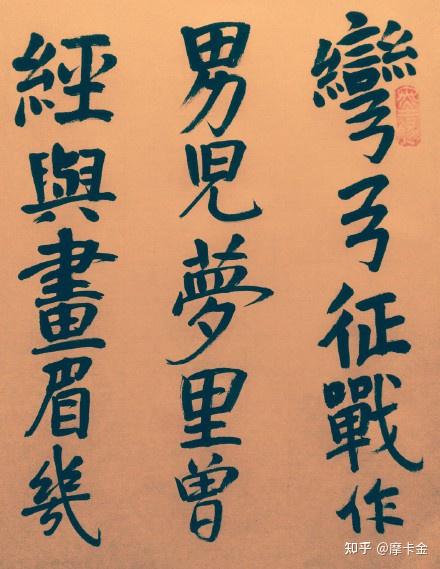 彎弓征戰作
男児夢里曽
經與畫眉幾
知乎 @摩卡金